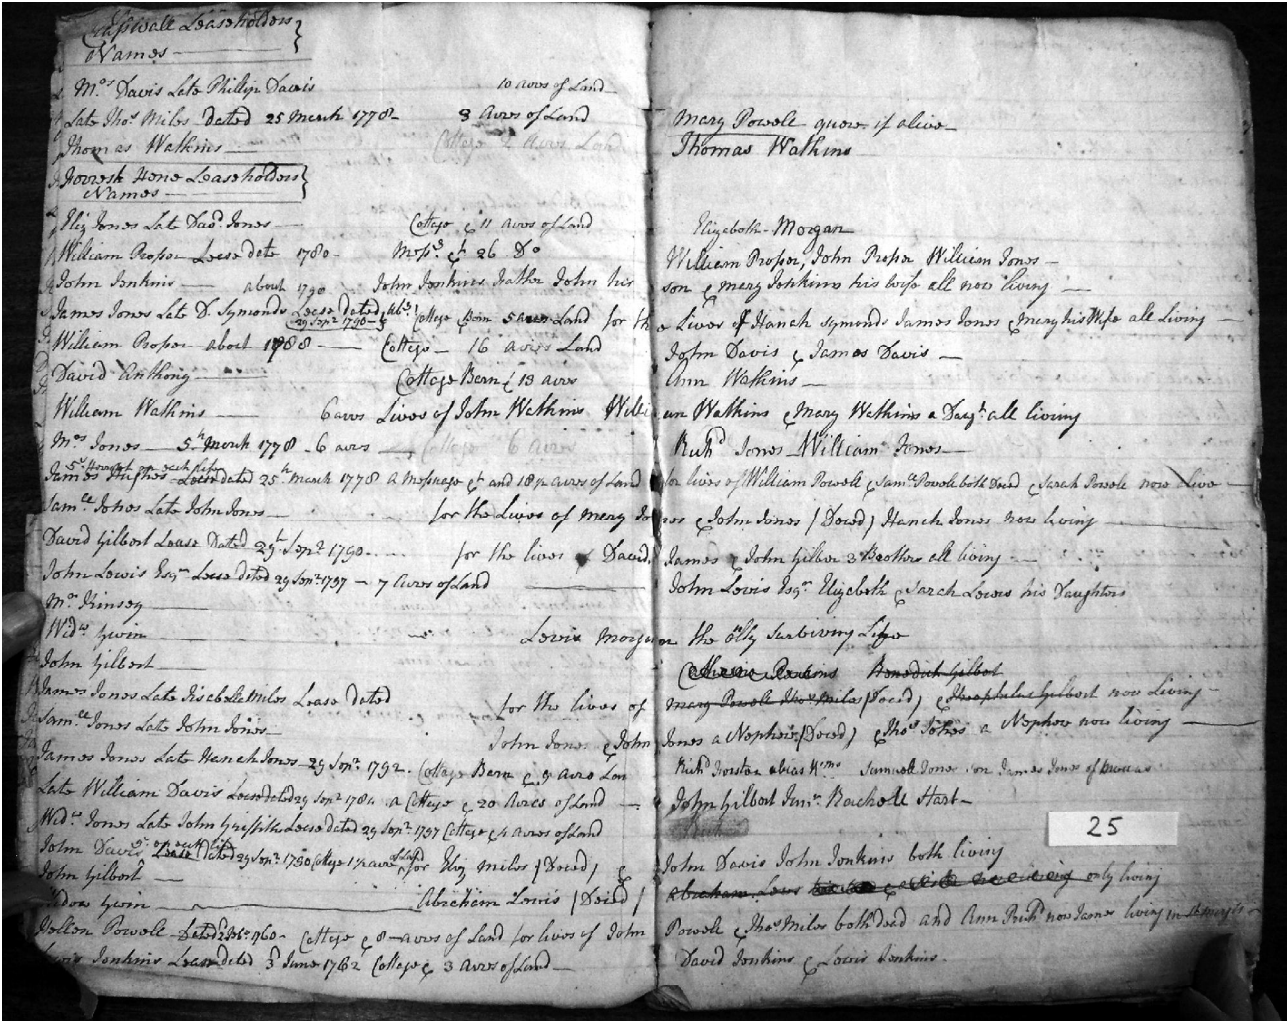 Leaseholders
Names
Mrs Davis Late Phillip Davis 10 acres of Land
Late Thos Miles dated 25 March 1778 8 Acres of Land Mary Powell quere if alive
Thomas Watkins Cottage 2 Acres Land Thomas Watkins
Hene Leaseholders
Names
Eliz Jones Late Davd Jones Cottage & 11 acres of Land Elizabeth Morgan
William Proper Lease date 1780 Messe & 26 Do William Proper, John Proper William Jones
John Jenkins about 1790 John Jenkins Father John his son & Mary Jenkins his wife all now living
James Jones Late D. Symonds Lease dated 29 Sepr 1790 Cottage & Barn 5 acres Land for the Lives of Hanah Symonds James Jones & Mary his Wife all Living
William Proper about 1788 Cottage 16 acres Land John Davis & James Davis
David Anthony Cottage Barn & 13 acres Ann Watkins
William Watkins 6 acres Lives of John Watkins William Watkins & Mary Watkins a Daugr all living
Mrs Jones 5th March 1778 6 acres Cottage 6 acres Richd Jones William Jones
5s Herriot on each life
James Hughes Lease dated 25th March 1778 a Messuage & and 18½ acres of Land for lives of William Powell & Saml Powell both Deced & Sarah Powell now Live
Samll Jones Late John Jones for the Lives of Mary Jones & John Jones (Deced) Hanah Jones now living
David Gilbert Lease Dated 29th Sepr 1790 for the lives of David, James & John Gilber 3 Brothers all living
John Lewis Esqr Lease dated 29 Sepr 1797 7 Acres of Land John Lewis Esqr Elizabeth & Sarah Lewis his Daughters
Mr Kinsey
Widw Gwin Lewis Morgan the only Surviving Life
John Gilbert Benedict Gilbert
James Jones Late Isabella Miles Lease dated for the lives of Mary Powell Thos Miles (Deced) & Theophilus Gilbert now Living
Samll Jones Late John Jones John Jones & John Jones a Nephew (Deced) & Thos Jones a Nephew now living
James Jones Late Hanah Jones 29 Sepr 1792 Cottage Barn & 9 acres Lan Richd alias Samuel Jones son James Jones of
Late William Davis Lease dated 29 Sepr 1784 a Cottage & 20 Acres of Land John Gilbert Junr Rachell Hart
Widw Jones Late John Griffiths Lease dated 29 Sepr 1797 Cottage & 4 acres of Land
25
John David Lease dated 29 Sepr 1780 Cottage 1½ acre of Land for Eliz Miles (Deced) & John Davis John Jenkins both living
on each life
John Gilbert
Widow Gwin Abraham Lewis (Deced) Abraham Lewis only living
Powell Dated 1760 Cottage & 8 acres of Land for lives of John Powell & Thos Miles both dead and Ann Richd now James living in
Lewis Jenkins Lease dated 3d June 1762 Cottage & 3 Acres of Land David Jenkins & Lewis Jenkins